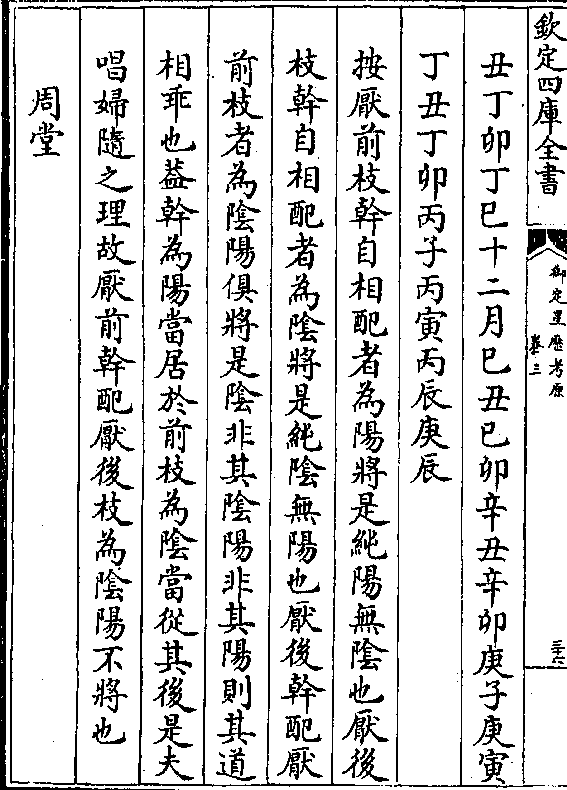 欽定四庫全書
御定星歷考原
卷三
三十六
丑丁卯丁巳十二月己丑己卯辛丑辛卯庚子庚寅
丁丑丁卯丙子丙寅丙辰庚辰
按厭前枝幹自相配者為陽將是純陽無陰也厭後
枝幹自相配者為陰將是純陰無陽也厭後幹配厭
前枝者為陰陽俱將是陰非其陰陽非其陽則其道
相乖也葢幹為陽當居於前枝為陰當從其後是夫
唱婦隨之理故厭前幹配厭後枝為陰陽不將也
周堂